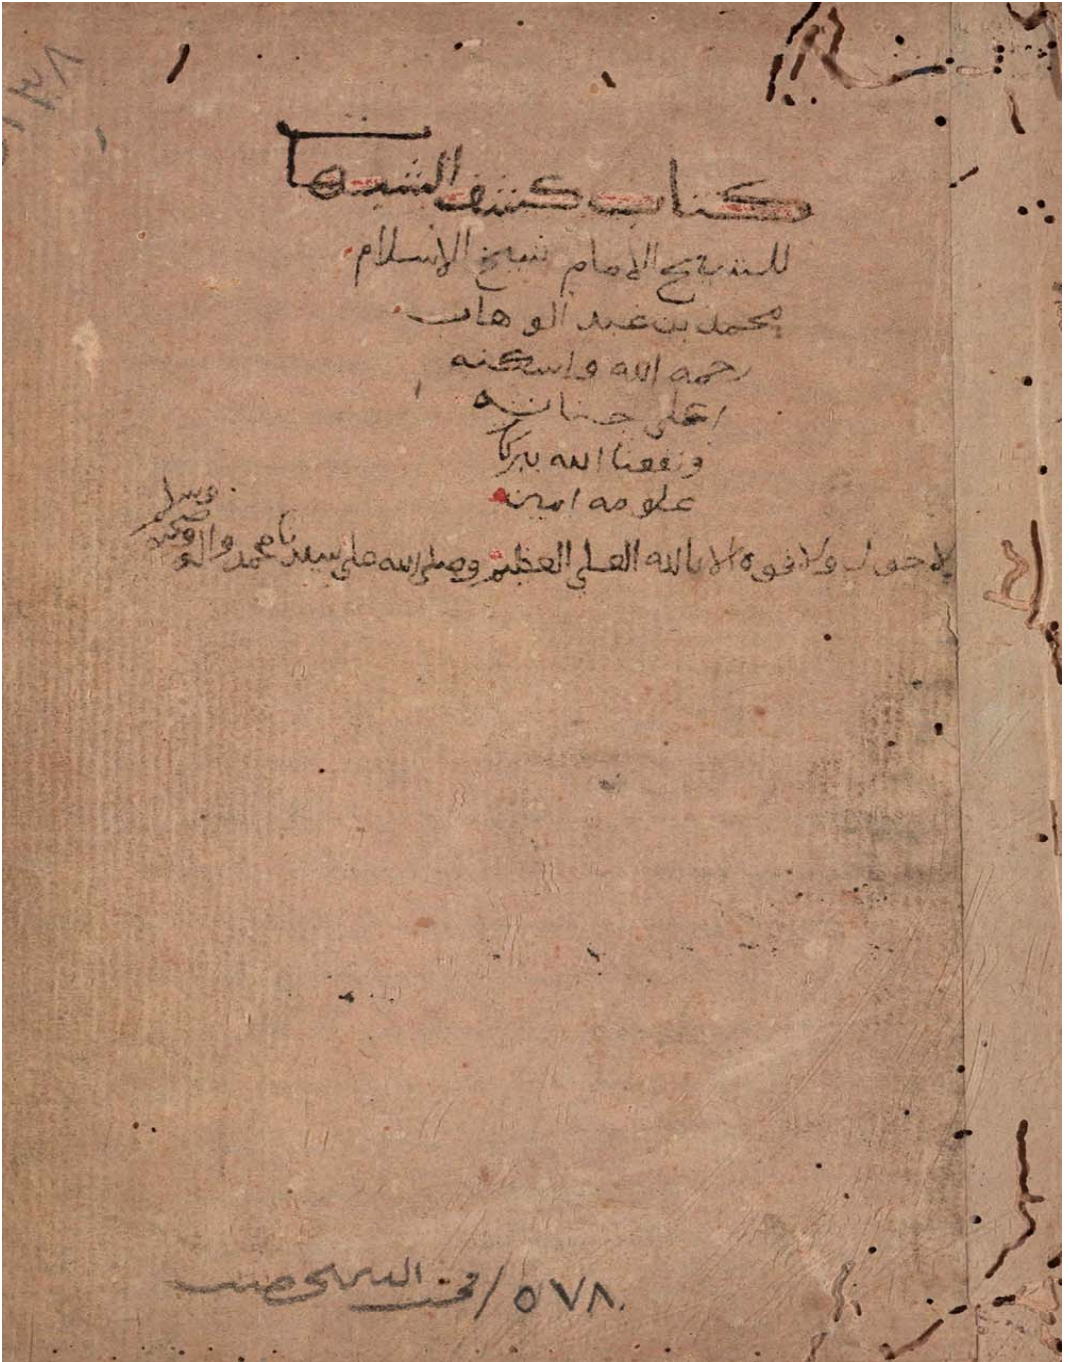 كتاب كشف الشبهات
للشيخ الامام شيخ الاسلام
محمد بن عبد الوهاب
رحمه الله واسكنه
اعلى جنانه
ونفعنا الله ببركا
علومه امين
لا حول ولا قوه الا بالله العلي العظيم وصلى الله على سيدنا محمد واله وصحبه وسلم
٥٧٨٠ /